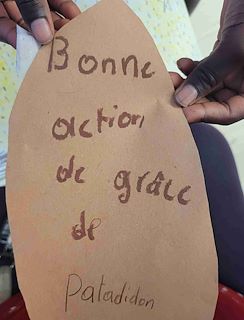 Bonne
action
de grâce
de
Patadidon